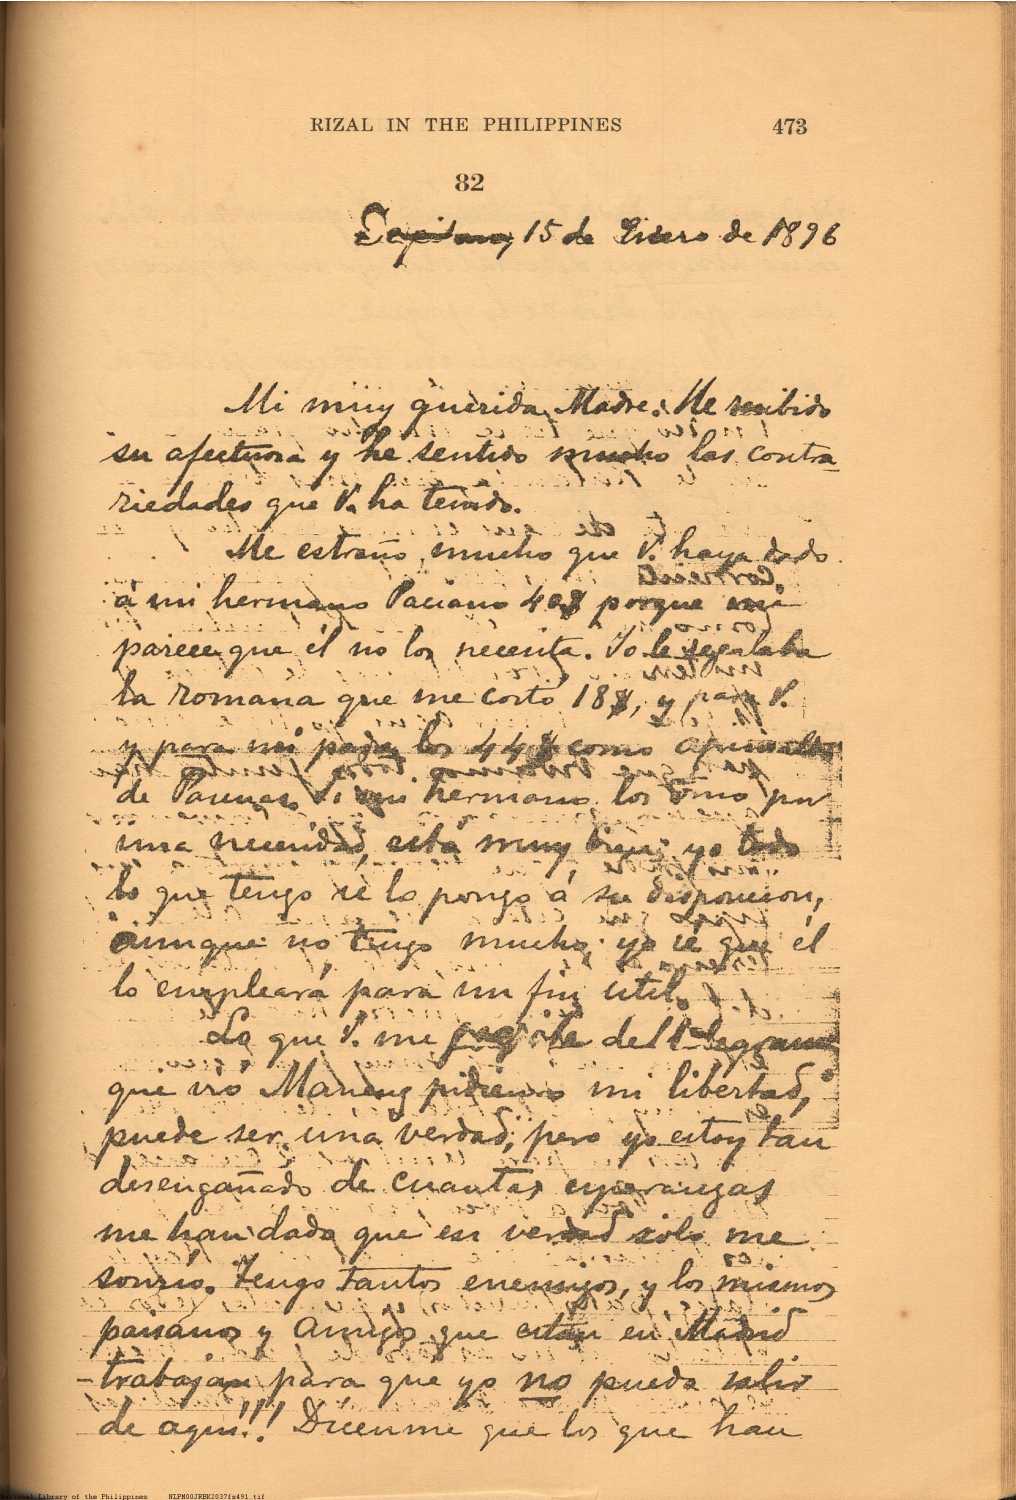 RIZAL IN THE PHILIPPINES 473
82
Dapitan, 15 de Enero de 1896
Mi muy querida Madre: He recibido
su afectuosa y he sentido mucho las contra
riedades que V. ha tenido.
Me estraño mucho que V. haya dado
á mi hermano Paciano 40$ porque mi
parece que él no los necesita. Yo le regalaba
la romana que me costó 18$, y para V.
y para mi padre los 44$ como aguinaldo
de Pascuas. Si mi hermano los tomó por
una necesidad, está muy bien; yo todo
lo que tengo se lo pongo á su disposicion,
aunque no tengo mucho; yo sé que él
lo empleará para un fin util.
Lo que V. me escribe del telegrama
que vió Manang pidiendo mi libertad,
puede ser una verdad, pero yo estoy tan
desengañado de cuantas esperanzas
me han dado que en verdad solo me
sonrio. Tengo tantos enemigos, y los mismos
paisanos y amigos que están en Madrid
trabajan para que yo no pueda salir
de aqui!!! Dicenme que los que han
National Library of the Philippines NLPM00JRBK2037fs491.tif